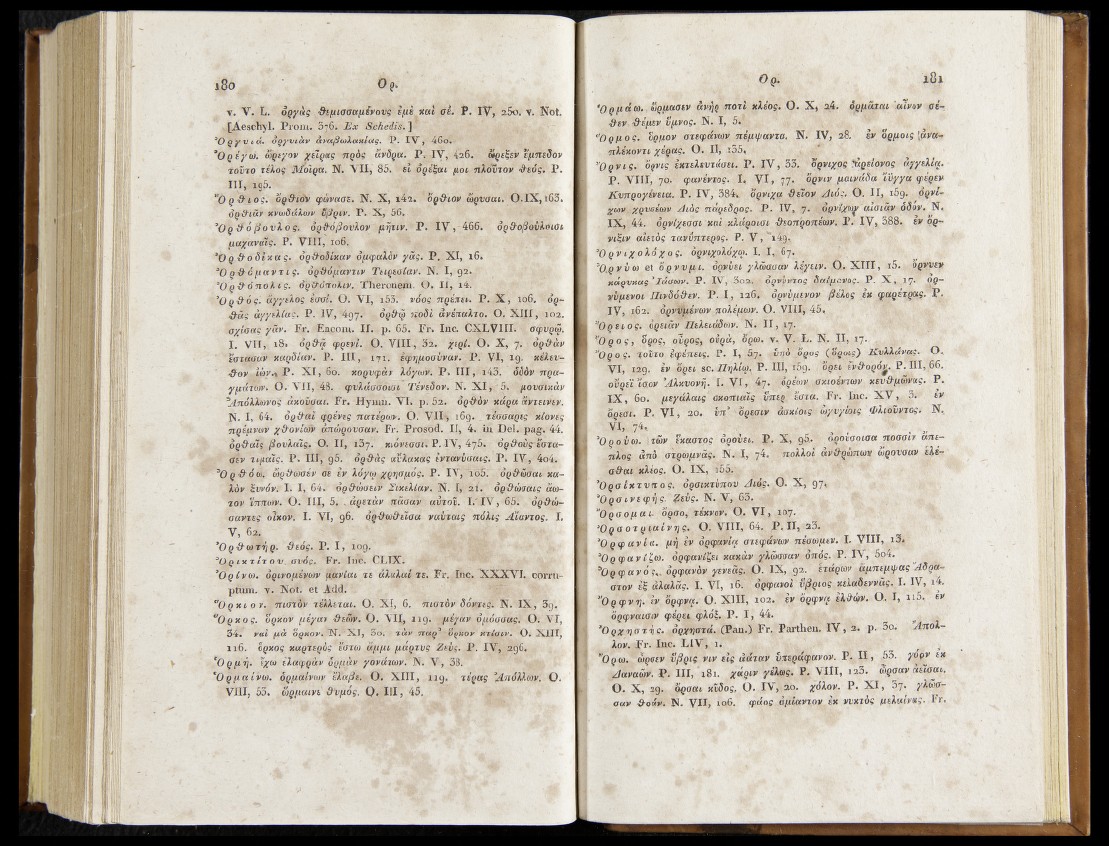 180 Ορ.
v. V. L. ὀργὰς θεμισσαμένους ἐμὲ καὶ σέ. P. IV, 250. v. Not.
[Aeschyl. Prom. 376. Ex Schedis.]
Ὀργυιά. ὀργυιὰν ἀναβωλακίας. P. IV, 460.
Ὀρέγω. ὤρεγον χεῖρας πρὸς ἄνδρα. P. IV, 426. ὤρεξεν ἔμπεδον
τοῦτο τέλος Μοῖρα. N. VII, 85. εἰ ὀρέξαι μοι πλοῦτον θεός. P.
III, 195.
Ὄρθιος. ὄρθιον φώνασε. N. X, 142. ὄρθιον ὤρυσαι. O. IX, 163.
ὀρθιᾶν κνωδάλων ὕβριν. P. X, 56.
Ὀρθόβουλος. ὀρθόβουλον μῆτιν. P. IV, 466. ὀρθοβούλοισι
μαχαναῖς. P. VIII, 106.
Ὀρθοδίκας. ὀρθοδίκαν ὀμφαλὸν γᾶς. P. XI, 16.
Ὀρθόμαντις. ὀρθόμαντιν Τειρεσίαν. N. I, 92.
Ὀρθόπολις. ὀρθόπολιν. Theronem. O. II, 14.
Ὀρθός. ἄγγελος ἐσσί. O. VI, 153. νόος πρέπει. P. X, 106. ὀρ-
θᾶς ἀγγελίας. P. IV, 497. ὀρθῷ ποδὶ ἀνέπαλτο. O. XIII, 102.
σχίσας γᾶν. Fr. Encom. II. p. 65. Fr. Inc. CXLVIII. σφυρῷ.
I. VII, 18. ὀρθᾷ φρενί. O. VIII, 32. χερί. O. X, 7. ὀρθὰν
ἔστασαν καρδίαν. P. III, 171. ἐφημοσύναν. P. VI, 19. κέλευ-
θον ἰών. P. XI, 60. κορυφὰν λόγων. P. III, 143. ὁδὸν πρα-
γμάτων. O. VII, 48. φυλάσσοισι Τένεδον. N. XI, 5. μουσικὰν
Ἀπόλλωνος ἀκοῦσαι. Fr. Hymn. VI. p. 52. ὀρθὸν κάρα ἄντεινεν.
N. I, 64. ὀρθαὶ φρένες πατέρων. O. VII, 169. τέσσαρες κίονες
πρέμνων χθονίων ἀπώρουσαν. Fr. Prosod. II, 4. in Del. pag. 44.
ὀρθαῖς βουλαῖς. O. II, 137. κιόνεσσι. P. IV, 475. ὀρθοὺς ἔστα-
σεν τιμαῖς. P. III, 95. ὀρθὰς αὔλακας ἐντανύσαις. P. IV, 404.
Ὀρθόω. ὤρθωσέν σε ἐν λόγῳ χρησμός. P. IV, 105. ὀρθῶσαι κα-
λὸν ξυνόν. I. I, 64. ὀρθώσειν Σικελίαν. N. I, 21. ὀρθώσαις ἄω-
τον ἵππων. O. III, 5. ἀρετὰν πᾶσαν αὐτοῖ. I. IV, 65. ὀρθώ-
σαντες οἶκον. I. VI, 96. ὀρθωθεῖσα ναύταις πόλις Αἴαντος. I.
V, 62.
Ὀρθωτήρ. θεός. P. I, 109.
Ὀρικτίτου συός. Fr. Inc. CLIX.
Ὀρίνω. ὀρινομένων μανίαι τε ἀλαλαί τε. Fr. Inc. XXXVI. corru-
ptum. v. Not. et Add.
Ὅρκιον. πιστὸν τέλλεται. O. XI, 6. πιστὸν δόντες. N. IX, 39.
Ὅρκος. ὅρκον μέγαν θεῶν. O. VII, 119. μέγαν ὀμόσσας. O. VI,
34. ναὶ μὰ ὅρκον. N. XI, 30. τὰν παρ' ὅρκον κτίσιν. O. XIII,
116. ὅρκος καρτερὸς ἔστω ἄμμι μάρτυς Ζεύς. P. IV, 296.
Ὁρμή. ἴχω ἐλαφρὰν ὁρμὰν γονάτων. N. V, 38.
Ὁρμαίνω. ὁρμαίνων ἔλαβε. O. XIII, 119. τέρας Ἀπόλλων. O.
VIII, 53. ὥρμαινε θυμός. O. III, 45.
Ορ. 181
Ὁρμάω. ὥρμασεν ἀνὴρ ποτὶ κλέος. O. X, 24. ὁρμᾶται αἶνον σέ-
θεν θέμεν ὕμνος. N. I, 5.
Ὅρμος. ὅρμον στεφάνων πέμψαντα. N. IV, 28. ἐν ὅρμοις [ἀνα-
πλέκοντι χέρας. O. II, 135.
Ὄρνις. ὄρνις ἐκτελευτάσει. P. IV, 33. ὄρνιχος ἀρείονος ἀγγελίᾳ.
P. VIII, 70. φανέντος. I. VI, 77. ὄρνιν μαινάδα ἴυγγα φέρεν
Κυπρογένεια. P. IV, 384. ὄρνιχα θεῖον Διός. O. II, 159. ὀρνί-
χων χρυσέων Διὸς πάρεδρος. P. IV, 7. ὀρνίχων αἰσιᾶν ὁδόν. N.
IX, 44. ὀρνίχεσσι καὶ κλάροισι θεοπροπέων. P. IV, 388. ἐν ὄρ-
νιξιν αἰετὸς τανύπτερος. P. V, 149.
Ὀρνιχολόχος. ὀρνιχολόχῳ. I. I, 67.
Ὀρνύω et ὄρνυμι. ὀρνύει γλῶσσαν λέγειν. O. XIII, 15. ὄρνυεν
κάρυκας Ἰάσων. P. IV, 302. ὀρνύντος δαίμονος. P. X, 17. ὀρ-
νύμενοι Πινδόθεν. P. I, 126. ὀρνύμενον βέλος ἐκ φαρέτρας. P.
IV, 162. ὀρνυμένων πολέμων. O. VIII, 45.
Ὄρειος. ὀρειᾶν Πελειάδων. N. II, 17.
Ὄρος, ὄρος, οὖρος, οὐρά, ὅρω. v. V. L. N. II, 17.
Ὄρος. τοῦτο ἐφέπεις. P. I, 57. ὑπὸ ὄρος (ὄροις) Κυλλάνας. O.
VI, 129. ἐν ὄρει sc. Πηλίῳ. P. III, 159. ὄρει ἐνθορόν. P. III, 66.
οὔρεϊ ἴσον Ἀλκυονῆ. I. VI, 47. ὀρέων σκιοέντων κευθμῶνας. P.
IX, 60. μεγάλαις σκοπιαῖς ὕπερ ἔστα. Fr. Inc. XV, 3. ἐν
ὄρεσι. P. VI, 20. ὑπ' ὄρεσιν ἀσκίοις ὠγυγίοις Φλιοῦντος. N.
VI, 74.
Ὀρούω. τῶν ἕκαστος ὀρούει. P. X, 95. ὀρούσοισα ποσσὶν ἄπε-
πλος ἀπὸ στρωμνᾶς. N. I, 74. πολλοὶ ἀνθρώπων ὤρουσαν ἑλέ-
σθαι κλέος. O. IX, 155.
Ὀρσίκτυπος. ὀρσικτύπου Διός. O. X, 97.
Ὀρσινεφής. Ζεύς. N. V, 63.
Ὄρσομαι. ὄρσο, τέκνον. O. VI, 107.
Ὀρσοτριαίνης. O. VIII, 64. P. II, 23.
Ὀρφανία. μὴ ἐν ὀρφανίᾳ στεφάνων πέσωμεν. I. VIII, 13.
Ὀρφανίζω. ὀρφανίζει κακὰν γλῶσσαν ὀπός. P. IV, 504.
Ὀρφανός. ὀρφανὸν γενεᾶς. O. IX, 92. ἑτάρων ἀμπεμψας Ἀδρα-
στον ἐξ ἀλαλᾶς. I. VI, 16. ὀρφανοὶ ὕβριος κελαδεννᾶς. I. IV, 14.
Ὄρφνη. ἐν ὄρφνᾳ. O. XIII, 102. ἐν ὄρφνᾳ ἐλθών. O. I, 115. ἐν
ὄρφναισιν φέρει φλόξ. P. I, 44.
Ὀρχηστής. ὀρχηστά. (Pan.) Fr. Parthen. IV, 2. p. 30. Ἀπολ-
λον. Fr. Inc. LIV, 1.
Ὄρω. ὦρσεν ὕβρις νιν εἰς ἀάταν ὑπεράφανον. P. II, 53. γόον ἐκ
Δαναῶν. P. III, 181. χάριν γέλως. P. VIII, 123. ὦρσαν ἀεῖσαι.
O. X, 29. ὄρσαι κῦδος. O. IV, 20. χόλον. P. XI, 37. γλῶσ-
σαν θοάν. N. VII, 106. φάος ἀμίαντον ἐκ νυκτὸς μελαίνας. Fr.